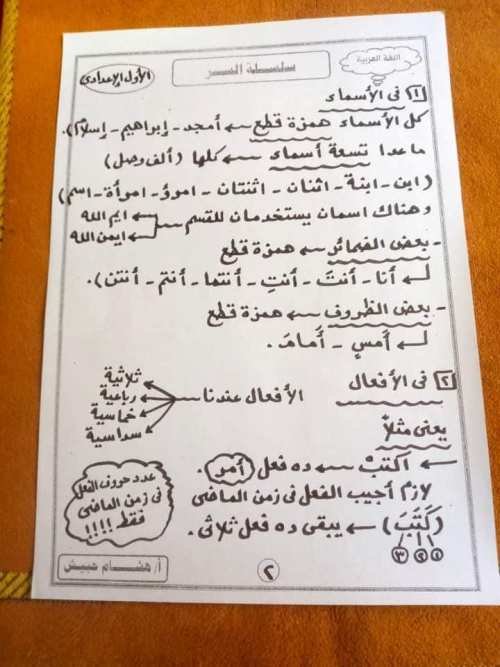 اللغة العربية
سلسلة السر
الأول الإعدادى
١ فى الأسماء
كل الأسماء همزة قطع ← أمجد - إبراهيم - إسلام).
ماعدا تسعة أسماء ← كلها (ألف وصل)
(ابن - ابنة - اثنان - اثنتان - امرؤ - امرأة - اسم)
وهناك اسمان يستخدمان للقسم ← ايم الله
← ايمن الله
- بعض الضمائر ← همزة قطع
← أنا - أنتَ - أنتِ - أنتما - أنتم - أنتن).
- بعض الظروف ← همزة قطع
← أَمسِ - أَمامَ .
٢ فى الأفعال
الأفعال عندنا ← ثلاثية
← رباعية
← خماسية
← سداسية
يعنى مثلاً
← اكتبْ ← ده فعل أمر .
لازم أجيب الفعل فى زمن الماضى
(كَتَبَ) ← يبقى ده فعل ثلاثى .
١ ٢ ٣
عدد حروف الفعل
فى زمن الماضى
فقط !!!!
أ/ هشام حبيش
٢